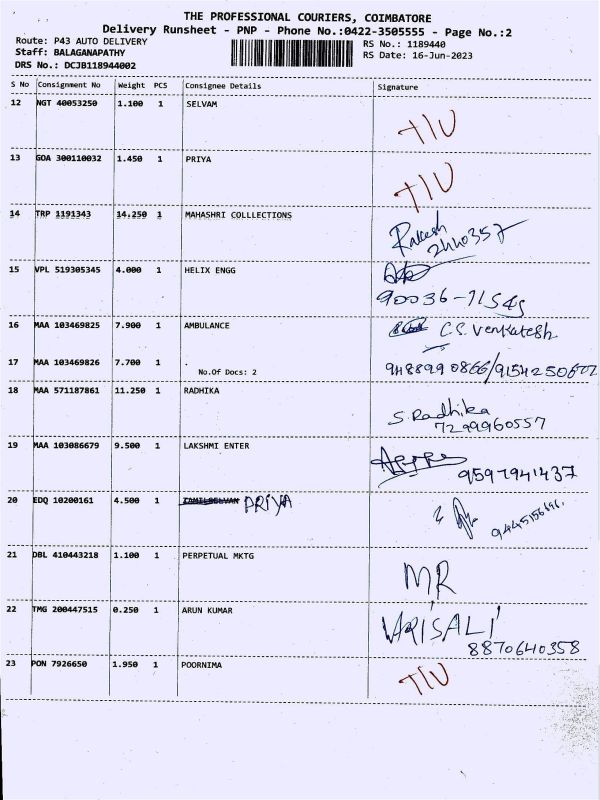 THE PROFESSIONAL COURIERS, COIMBATORE
Delivery Runsheet - PNP - Phone No.:0422-3505555 - Page No.:2
Route: P43 AUTO DELIVERY RS No.: 1189440
Staff: BALAGANAPATHY RS Date: 16-Jun-2023
DRS No.: DCJB118944002
S No Consignment No Weight PCS Consignee Details Signature
12 NGT 40053250 1.100 1 SELVAM
T/U
13 GOA 300110032 1.450 1 PRIYA
T/U
14 TRP 1191343 14.250 1 MAHASHRI COLLLECTIONS
Rakesh
2440357
15 VPL 519305345 4.000 1 HELIX ENGG
90036-71545
16 MAA 103469825 7.900 1 AMBULANCE C.S. Venkatesh
17 MAA 103469826 7.700 1
No.Of Docs: 2 9488990866/9154250672
18 MAA 571187861 11.250 1 RADHIKA
S. Radhika
7299960557
19 MAA 103086679 9.500 1 LAKSHMI ENTER
9597941437
20 EDQ 10200161 4.500 1 TAMILSELVAN PRIYA
9445156696.
21 DBL 410443218 1.100 1 PERPETUAL MKTG
MR
22 TMG 200447515 0.250 1 ARUN KUMAR
VARISALI
8870640358
23 PON 7926650 1.950 1 POORNIMA
T/U